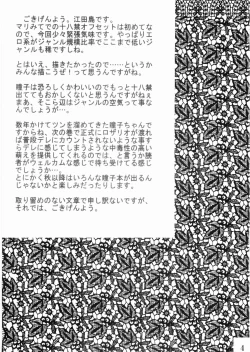 ごきげんよう。江田島です。
マリみてでの十八禁オフセットは初めてなので、今回少々緊張気味です。やっぱりエロ系がジャンル規模比率でここまで低いジャンルも稀ですしね。
とはいえ、描きたかったので……というかみんな描こうぜ!って思うんですが。
瞳子は恐ろしくかわいいのでもっと十八禁出ててもおかしくないと思うんですがねぇまぁ、そこら辺はジャンルの空気って事なんでしょうが。
数年かけてツンを溜めてきた瞳子ちゃんですからね、次の巻で正式にロザリオが渡れば普段デレにカウントされないような事すらデレに感じてしまうこの中毒性の高い萌えを提供してくれるのでは、と言うか読者がウェルカムな感じで待ち受けてる感じでしょうか…。
とにかく秋以降はいろんな瞳子本が出るんじゃないかと夢みたりします。
取り留めのない文章で申し訳ないですが、それでは、ごきげんよう。
4